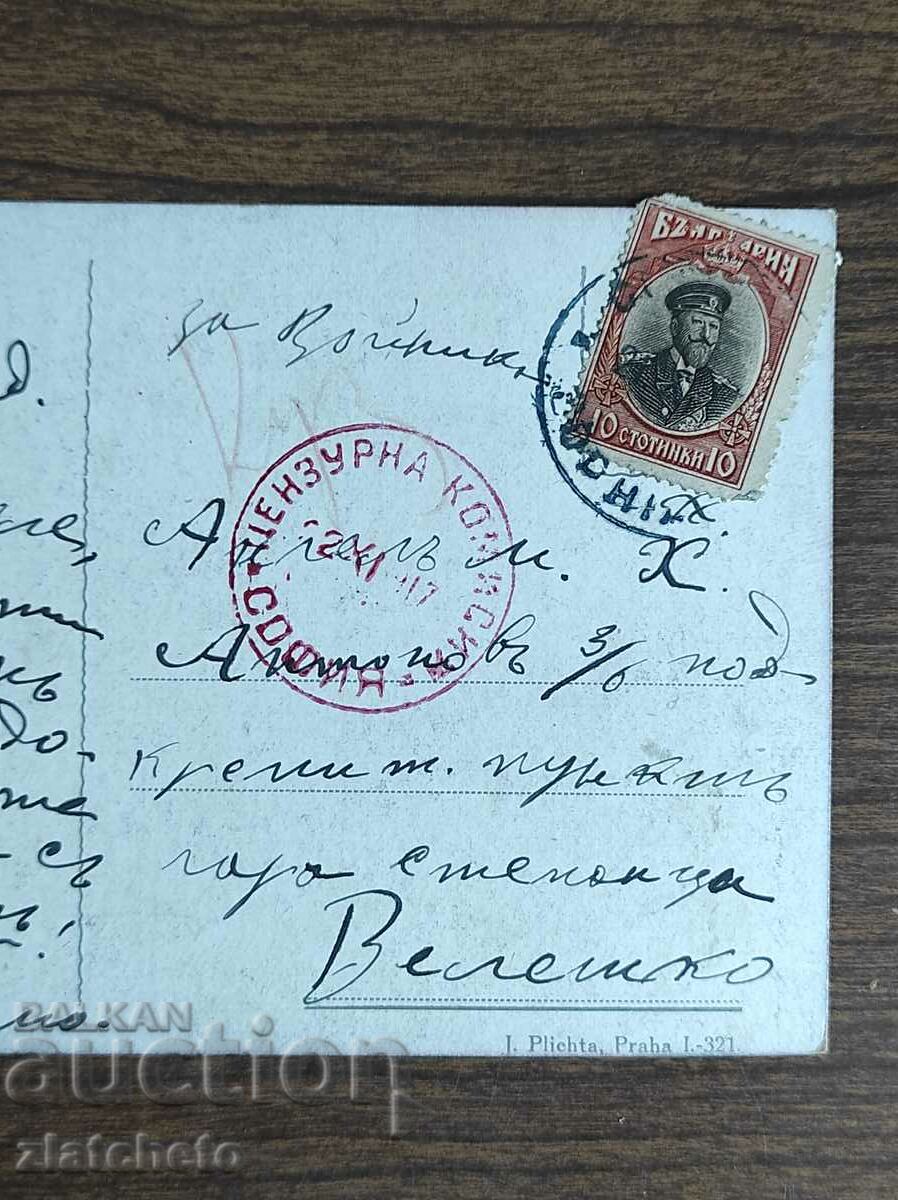 БЪЛГАРИЯ
10 СТОТИНКИ 10
за Войникъ
ЦЕНЗУРНА КОМИСИЯ
СОФИЯ
Ангелъ м. Х.
Антоновъ 3/6 под-
крепит. пунктъ
гара степанца
Велешко
д.
до-
съ
но.
J. Plichta, Praha I.-321.
BALKAN
auction
zlatcheto